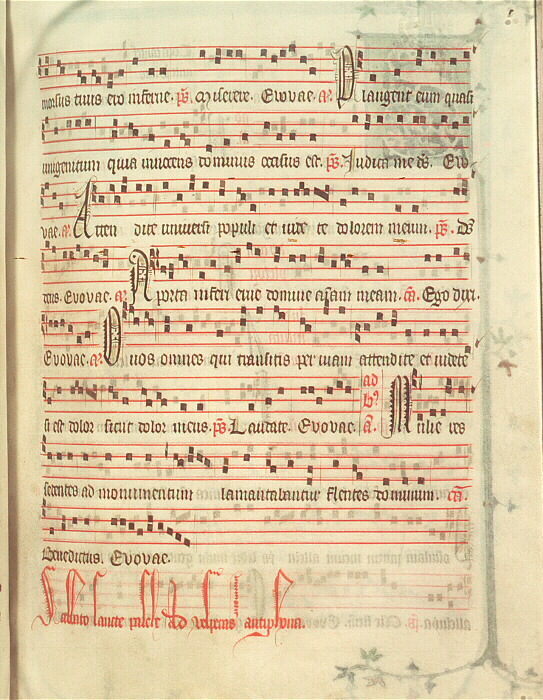 morsus tuus ero inferne. ps. Miserere. Evovae. a. Plangent eum quasi
unigenitum quia innocens dominus occisus est. ps. Judica me ds. Evo
vae. a. Atten dite universi populi et vide te dolorem meum. ps. ds
Evovae. a. A porta inferi erue domine aīam meam. cā. Ego dixi.
Evovae. a. O vos omnes qui transitis per viam attendite et videte
si est dolor sicut dolor meus. ps. Laudate. Evovae. ad b9 a. Mulie res
sedentes ad monumentum lamantabantur flentes dominum. cā.
Benedictus. Evovae.
sabbato sancte pasche ad vesperas antiphona.